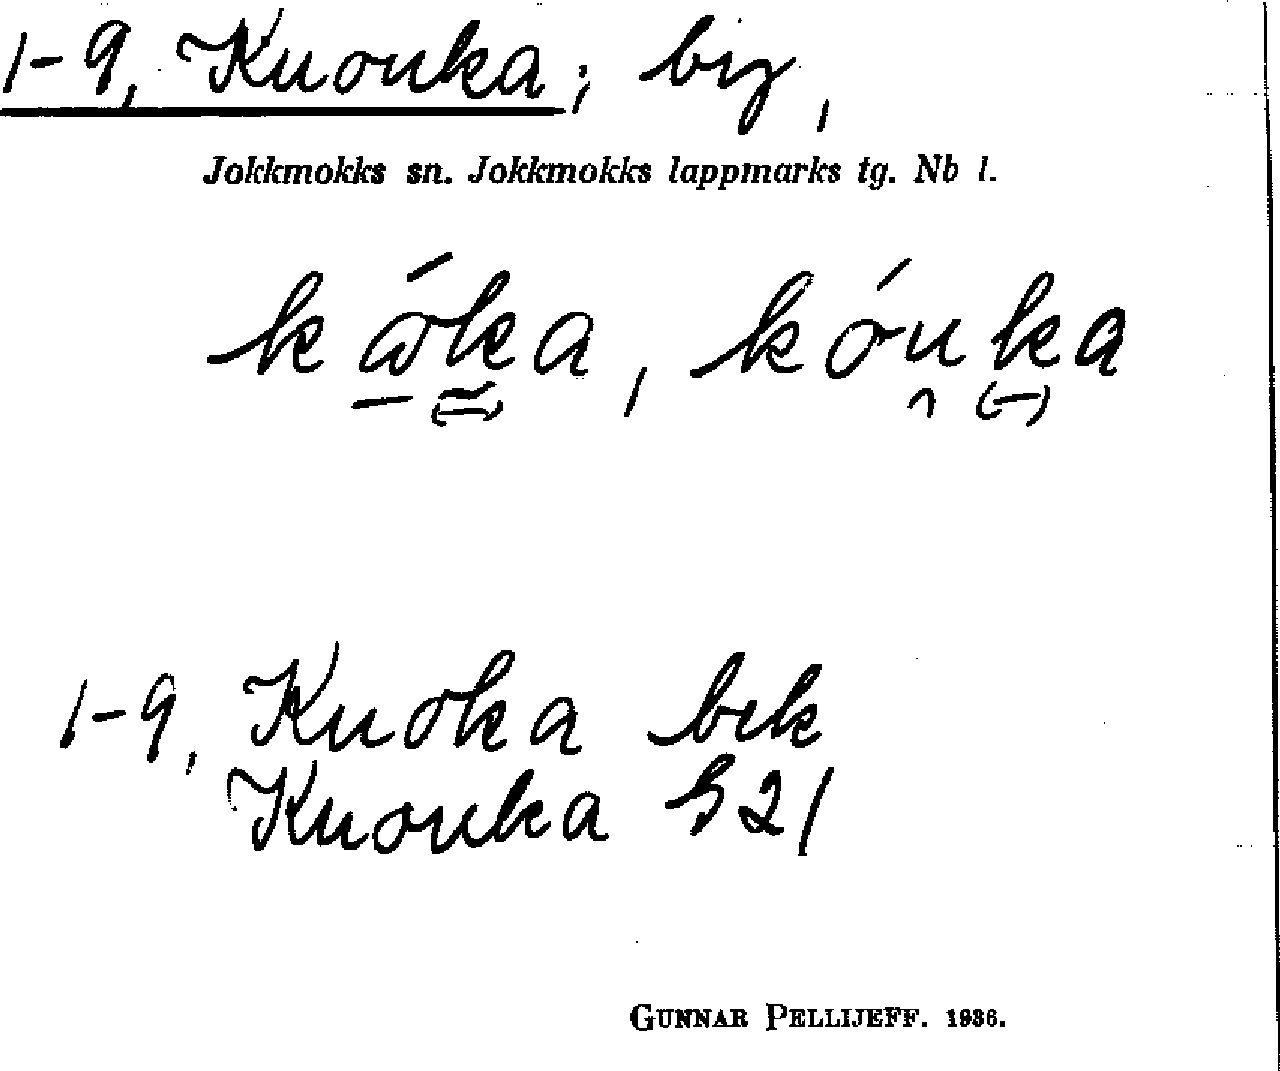 1-9, Kuouka; by,
Jokkmokks sn. Jokkmokks lappmarks tg. Nb l.
kǻka, kóuka
1-9, Kuoka bek
Kuouka S21
GUNNAR PELLIJEFF. 1936.